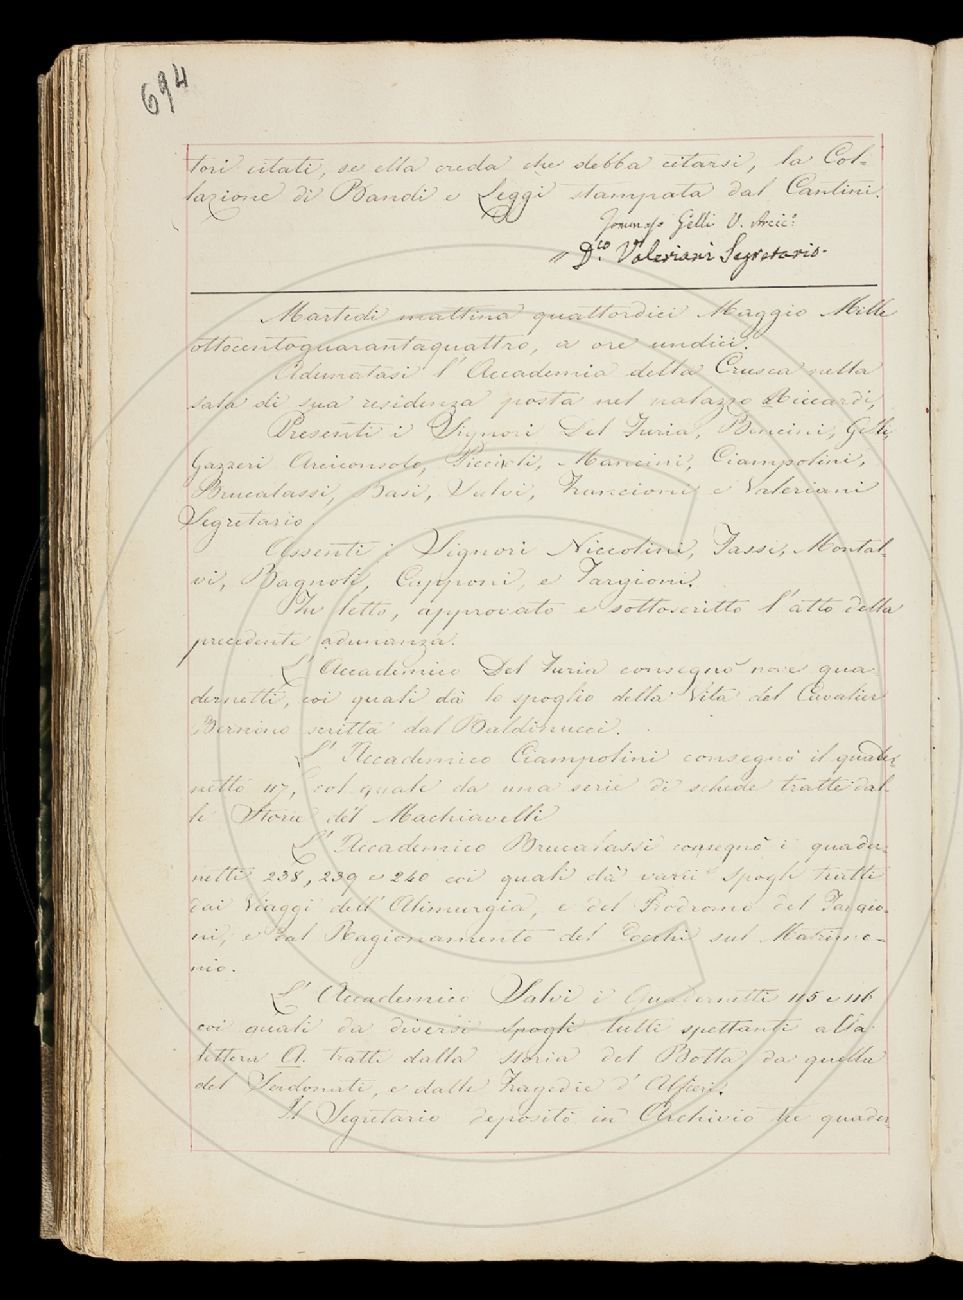 694
tori citati, se ella creda che debba citarsi, la Col-
lazione di Bandi e Leggi stampata dal Cantini.
Tommaso Gelli V. Arcic.º
D.co Valeriani Segretario.
Martedi mattina quattordici Maggio Mille
ottocentoquarantaquattro, a ore undici.
Adunatasi l'Accademia della Crusca nella
sala di sua residenza posta nel palazzo Riccardi,
Presenti i Signori Del Furia, Bencini, Gelli,
Gazzeri Arciconsolo, Piccioli, Mancini, Ciampolini,
Brucalassi, Basi, Salvi, Francioni e Valeriani
Segretario.
Assenti i Signori Niccolini, Tassi, Montal-
vi, Bagnoli, Capponi, e Targioni.
Fu letto, approvato e sottoscritto l'atto della
precedente adunanza.
L'Accademico Del Furia consegnò nove qua-
dernetti, coi quali dà lo spoglio della Vita del Cavalier
Bernino scritta dal Baldinucci.
L'Accademico Ciampolini consegnò il quader-
netto 117, col quale da una serie di schede tratte dal-
le Storie del Machiavelli
L'Accademico Brucalassi consegnò i quader-
netti 238, 239 e 240 coi quali dà varii spogli tratti
dai Viaggi dell'Alimurgia, e del Prodromo del Targio-
ni, e dal Ragionamento del Cocchi sul Matrimo-
nio.
L'Accademico Salvi i Quadernetti 115 e 116
coi quali da diversi spogli tutti spettanti alla
lettera A. tratti dalla storia del Botta, da quella
del Serdonati, e dalle Tragedie d'Alfieri.
Il Segretario depositò in Archivio tre quader-